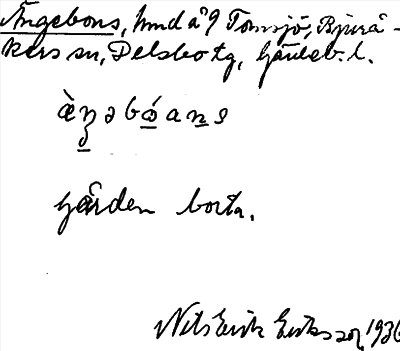 Ångebons, hmd å 9 Tomsjö, Bjurå-
kers sn, Delsbo tg, Gävleb. l.
àŋəbóans
Gården borta.
Nils Erik Eriksson, 1936